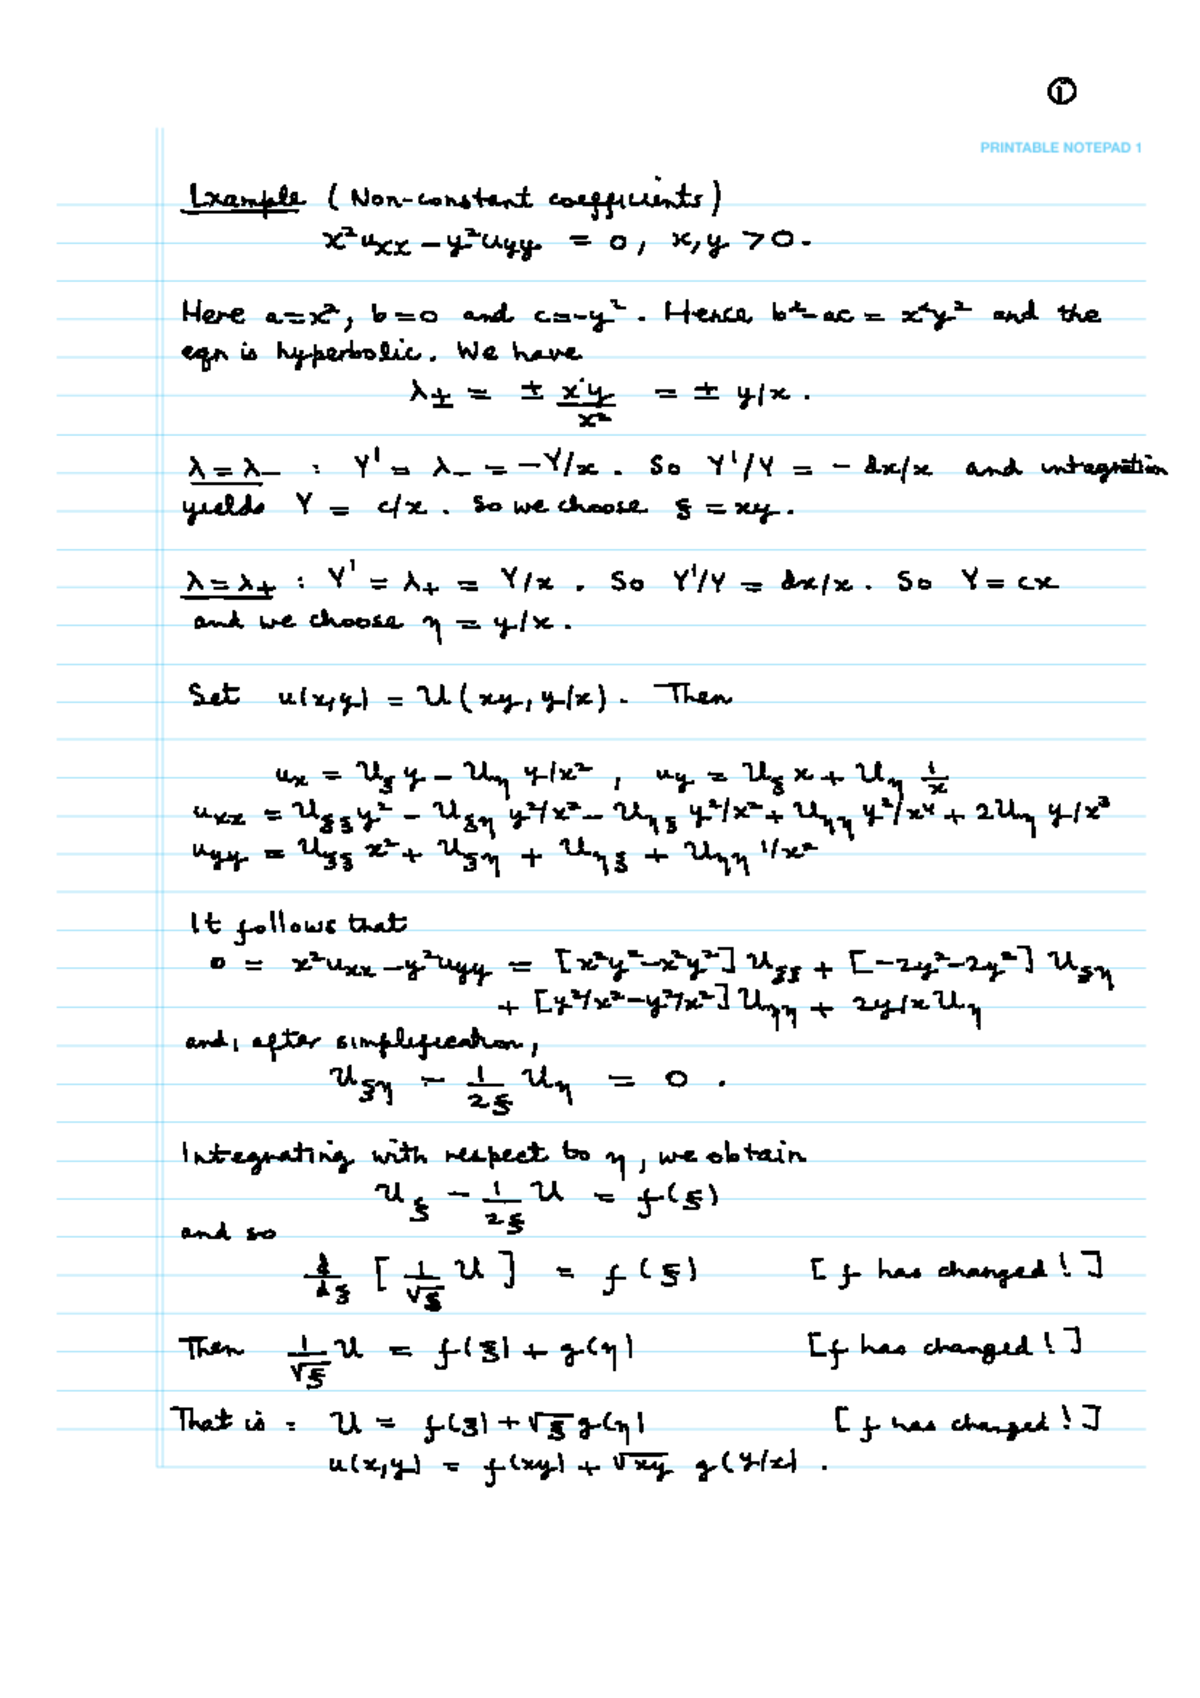 ①
PRINTABLE NOTEPAD 1
Example (Non-constant coefficients)
x²uxx − y²uyy = 0, x,y > 0.
Here a=x², b=0 and c=−y². Hence b²−ac = x²y² and the
eqn is hyperbolic. We have
λ± = ± xy/x² = ± y/x.
λ=λ− : Y' = λ− = −Y/x. So Y'/Y = − dx/x and integration
yields Y = c/x. So we choose ξ = xy.
λ=λ+ : Y' = λ+ = Y/x. So Y'/Y = dx/x. So Y = cx
and we choose η = y/x.
Set u(x,y) = U(xy, y/x). Then
ux = Uξ y − Uη y/x², uy = Uξ x + Uη 1/x
uxx = Uξξ y² − Uξη y²/x² − Uηξ y²/x² + Uηη y²/x⁴ + 2Uη y/x³
uyy = Uξξ x² + Uξη + Uηξ + Uηη 1/x²
It follows that
0 = x²uxx − y²uyy = [x²y²−x²y²] Uξξ + [−2y²−2y²] Uξη
+ [y²/x²−y²/x²] Uηη + 2y/x Uη
and, after simplification,
Uξη − 1/2ξ Uη = 0.
Integrating with respect to η, we obtain
Uξ − 1/2ξ U = f(ξ)
and so
d/dξ [1/√ξ U] = f(ξ) [f has changed!]
Then 1/√ξ U = f(ξ) + g(η) [f has changed!]
That is: U = f(ξ) + √ξ g(η) [f has changed!]
u(x,y) = f(xy) + √xy g(y/x).